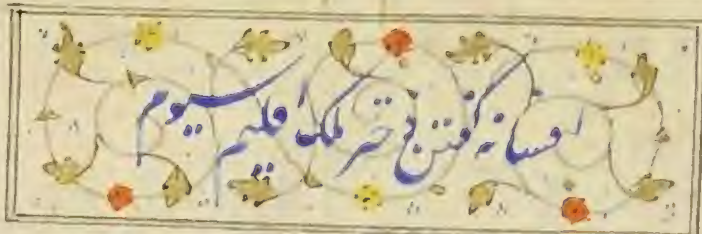 افسانه گفتن دختر ملک اقلیم سیوم